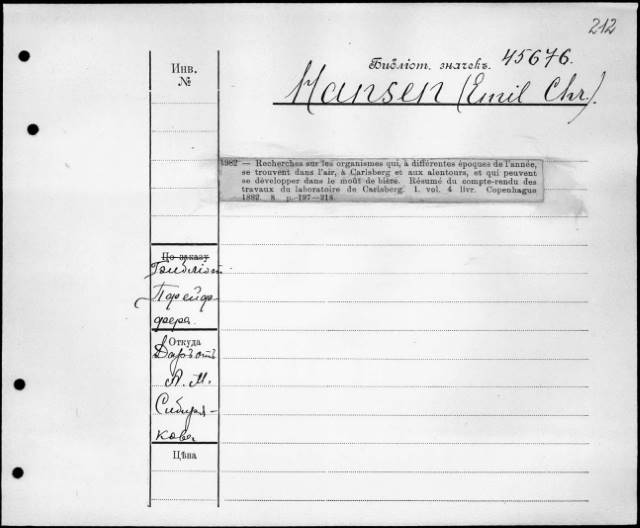 212
Библіот. значекъ 45676.
Инв.
№
Hansen (Emil Chr).
1982 — Recherches sur les organismes qui, à différentes époques de l'année,
se trouvent dans l'air, à Carlsberg et aux alentours, et qui peuvent
se développer dans le moût de bière. Résumé du compte-rendu des
travaux du laboratoire de Carlsberg. 1. vol. 4 livr. Copenhague
1882. 8. p. 197—214.
По заказу
Пфейф-
фера.
Откуда
Даръ отъ
А. М.
Сибиря-
кова
Цѣна